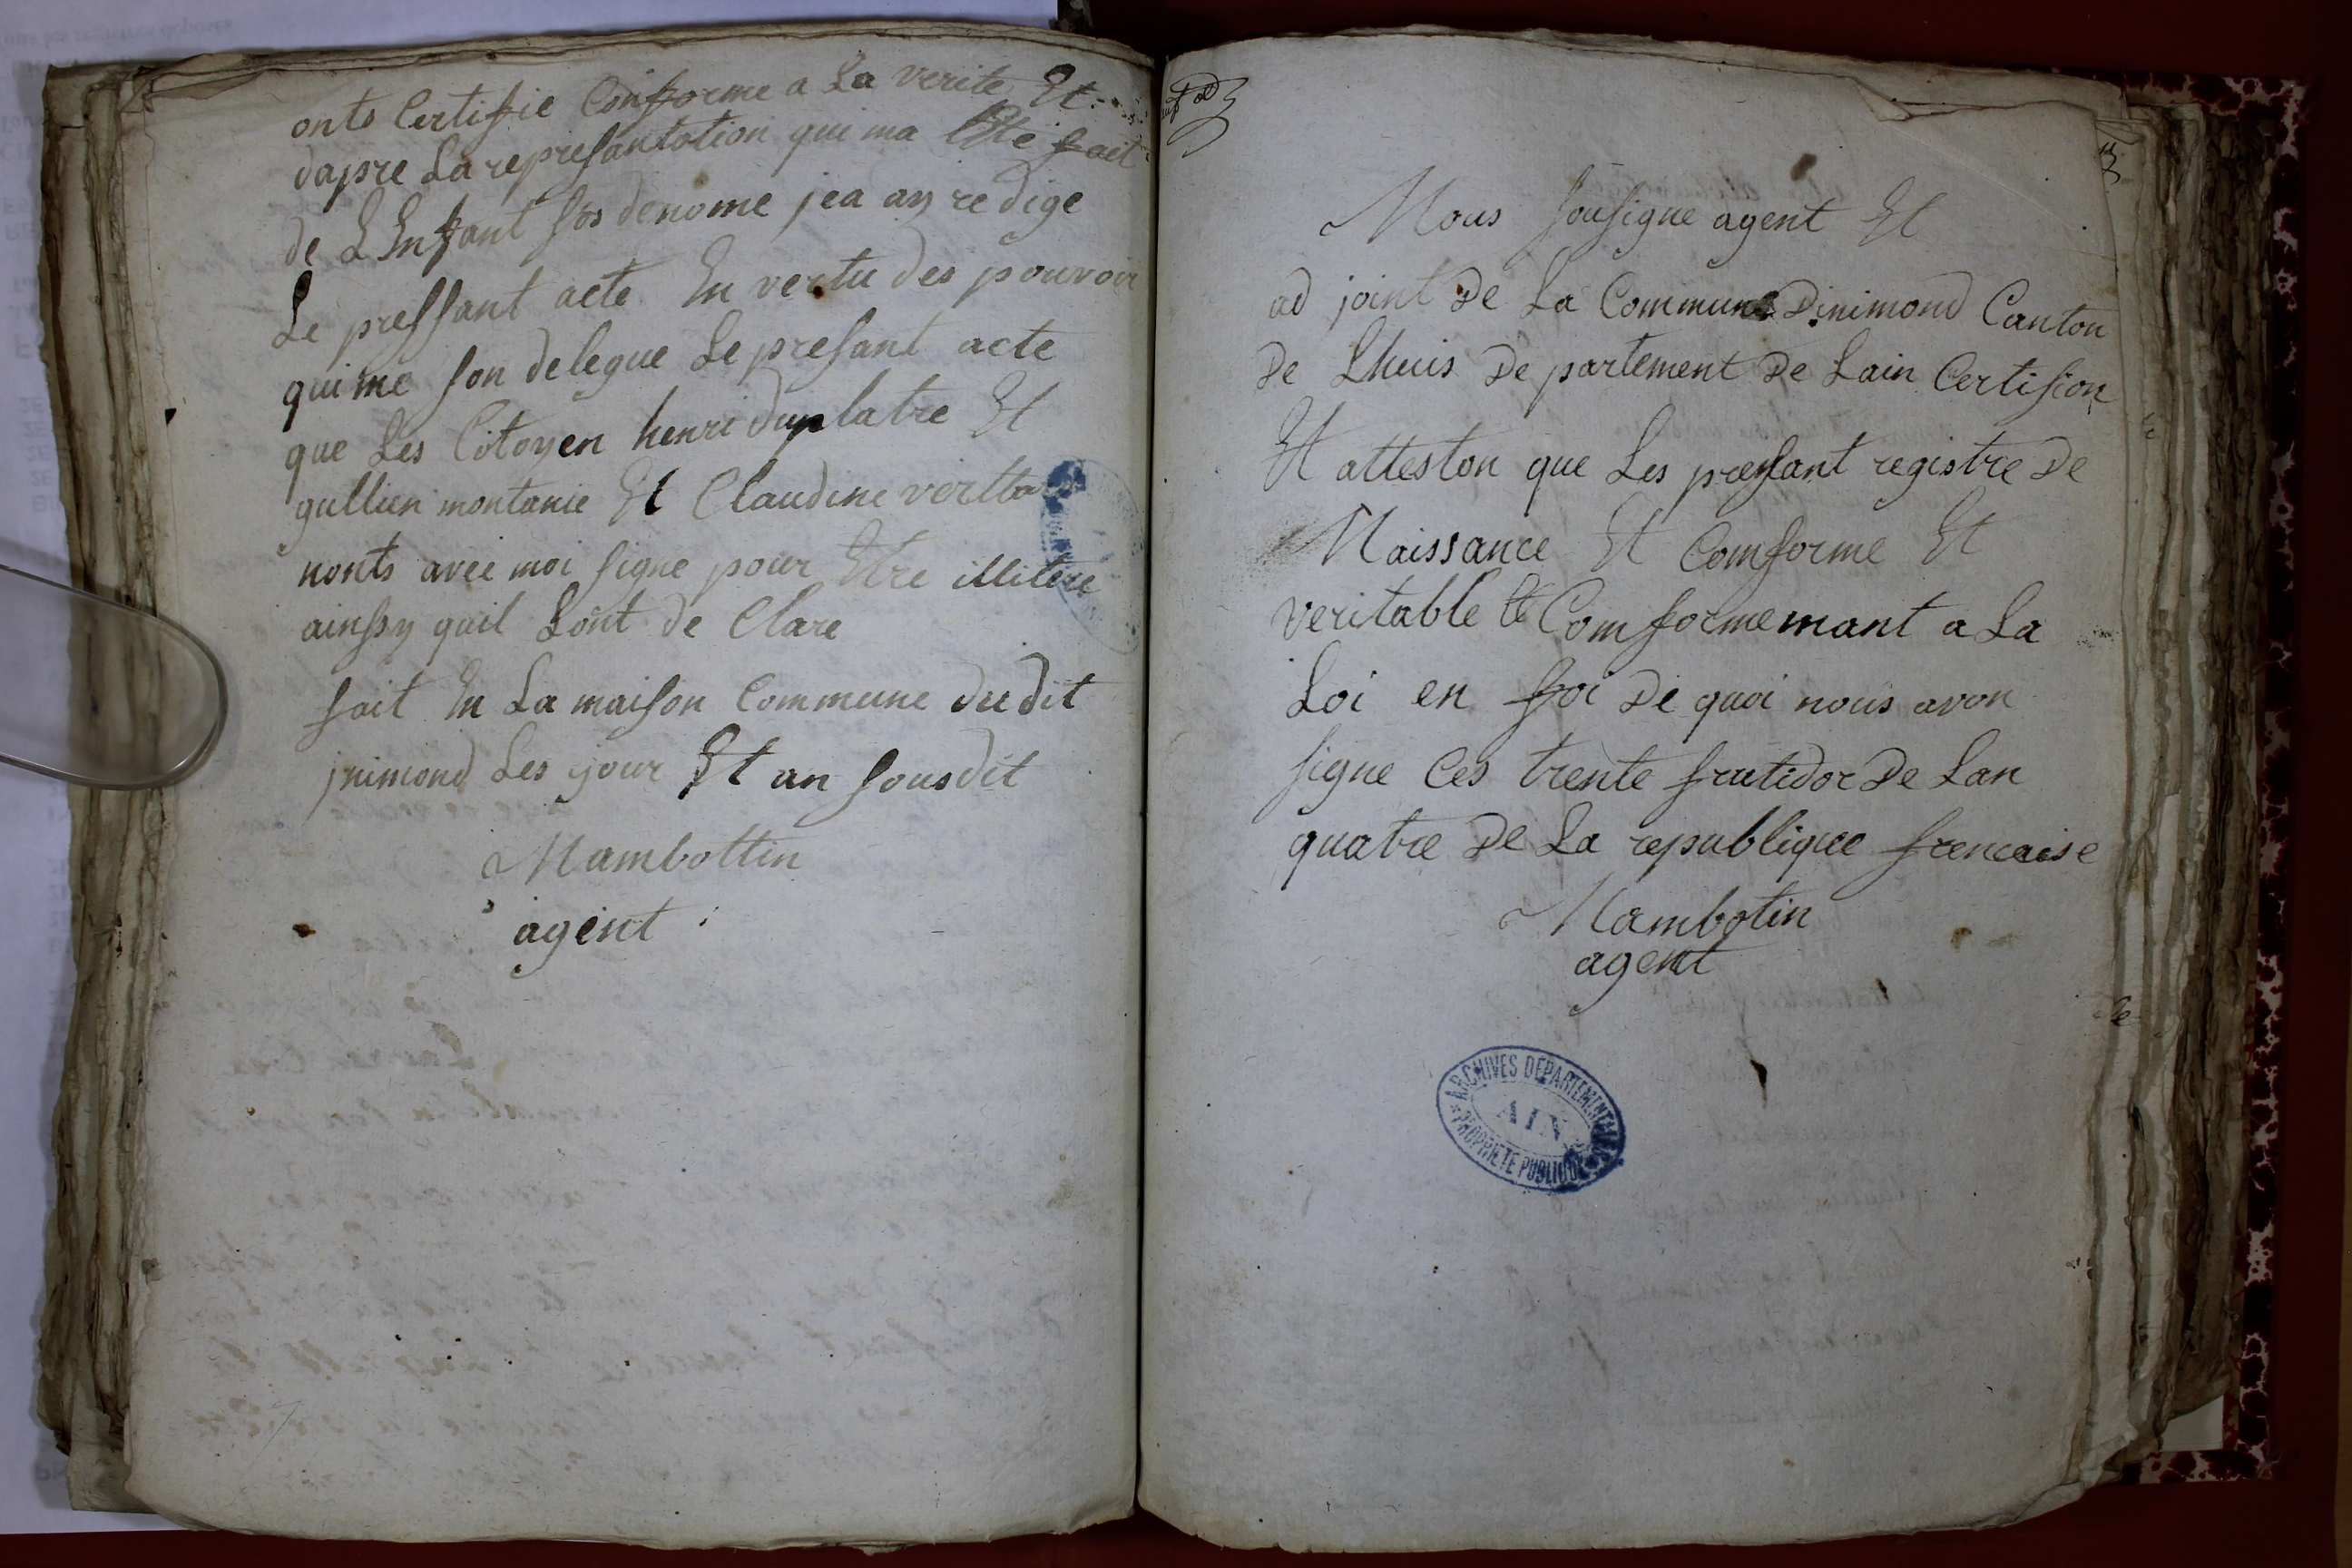 onts Certifie Conforme a La verite Et
dapre La represantation qui ma Ette fait
de L Enfant sos denome jea ay redige
Le pressant acte En vertu des pouvoir
qui me son delegue Le presant acte
que Les Citoyen henri duplatre Et
gullien montanie Et Claudine
nonts avec moi signe pour Etre illitere
ainssy quil Lont de Clare
fait En La maison Commune dudit
jnimond Les jour Et an sousdit
Mambottin
agent
Nous sousigne agent Et
ad joint De La Commune Dinimond Canton
De Lhuis De partement De Lain Certifion
Et atteston que Les presant registre De
Naissance Et Comforme Et
veritable Et Comformemant a La
Loi en foi De quoi nous avon
signe Ces trente frutidor De Lan
quatre De La republique francaise
Mambotin
agent
ARCHIVES DEPARTEMENTALES
AIN
PROPRIETE PUBLIQUE